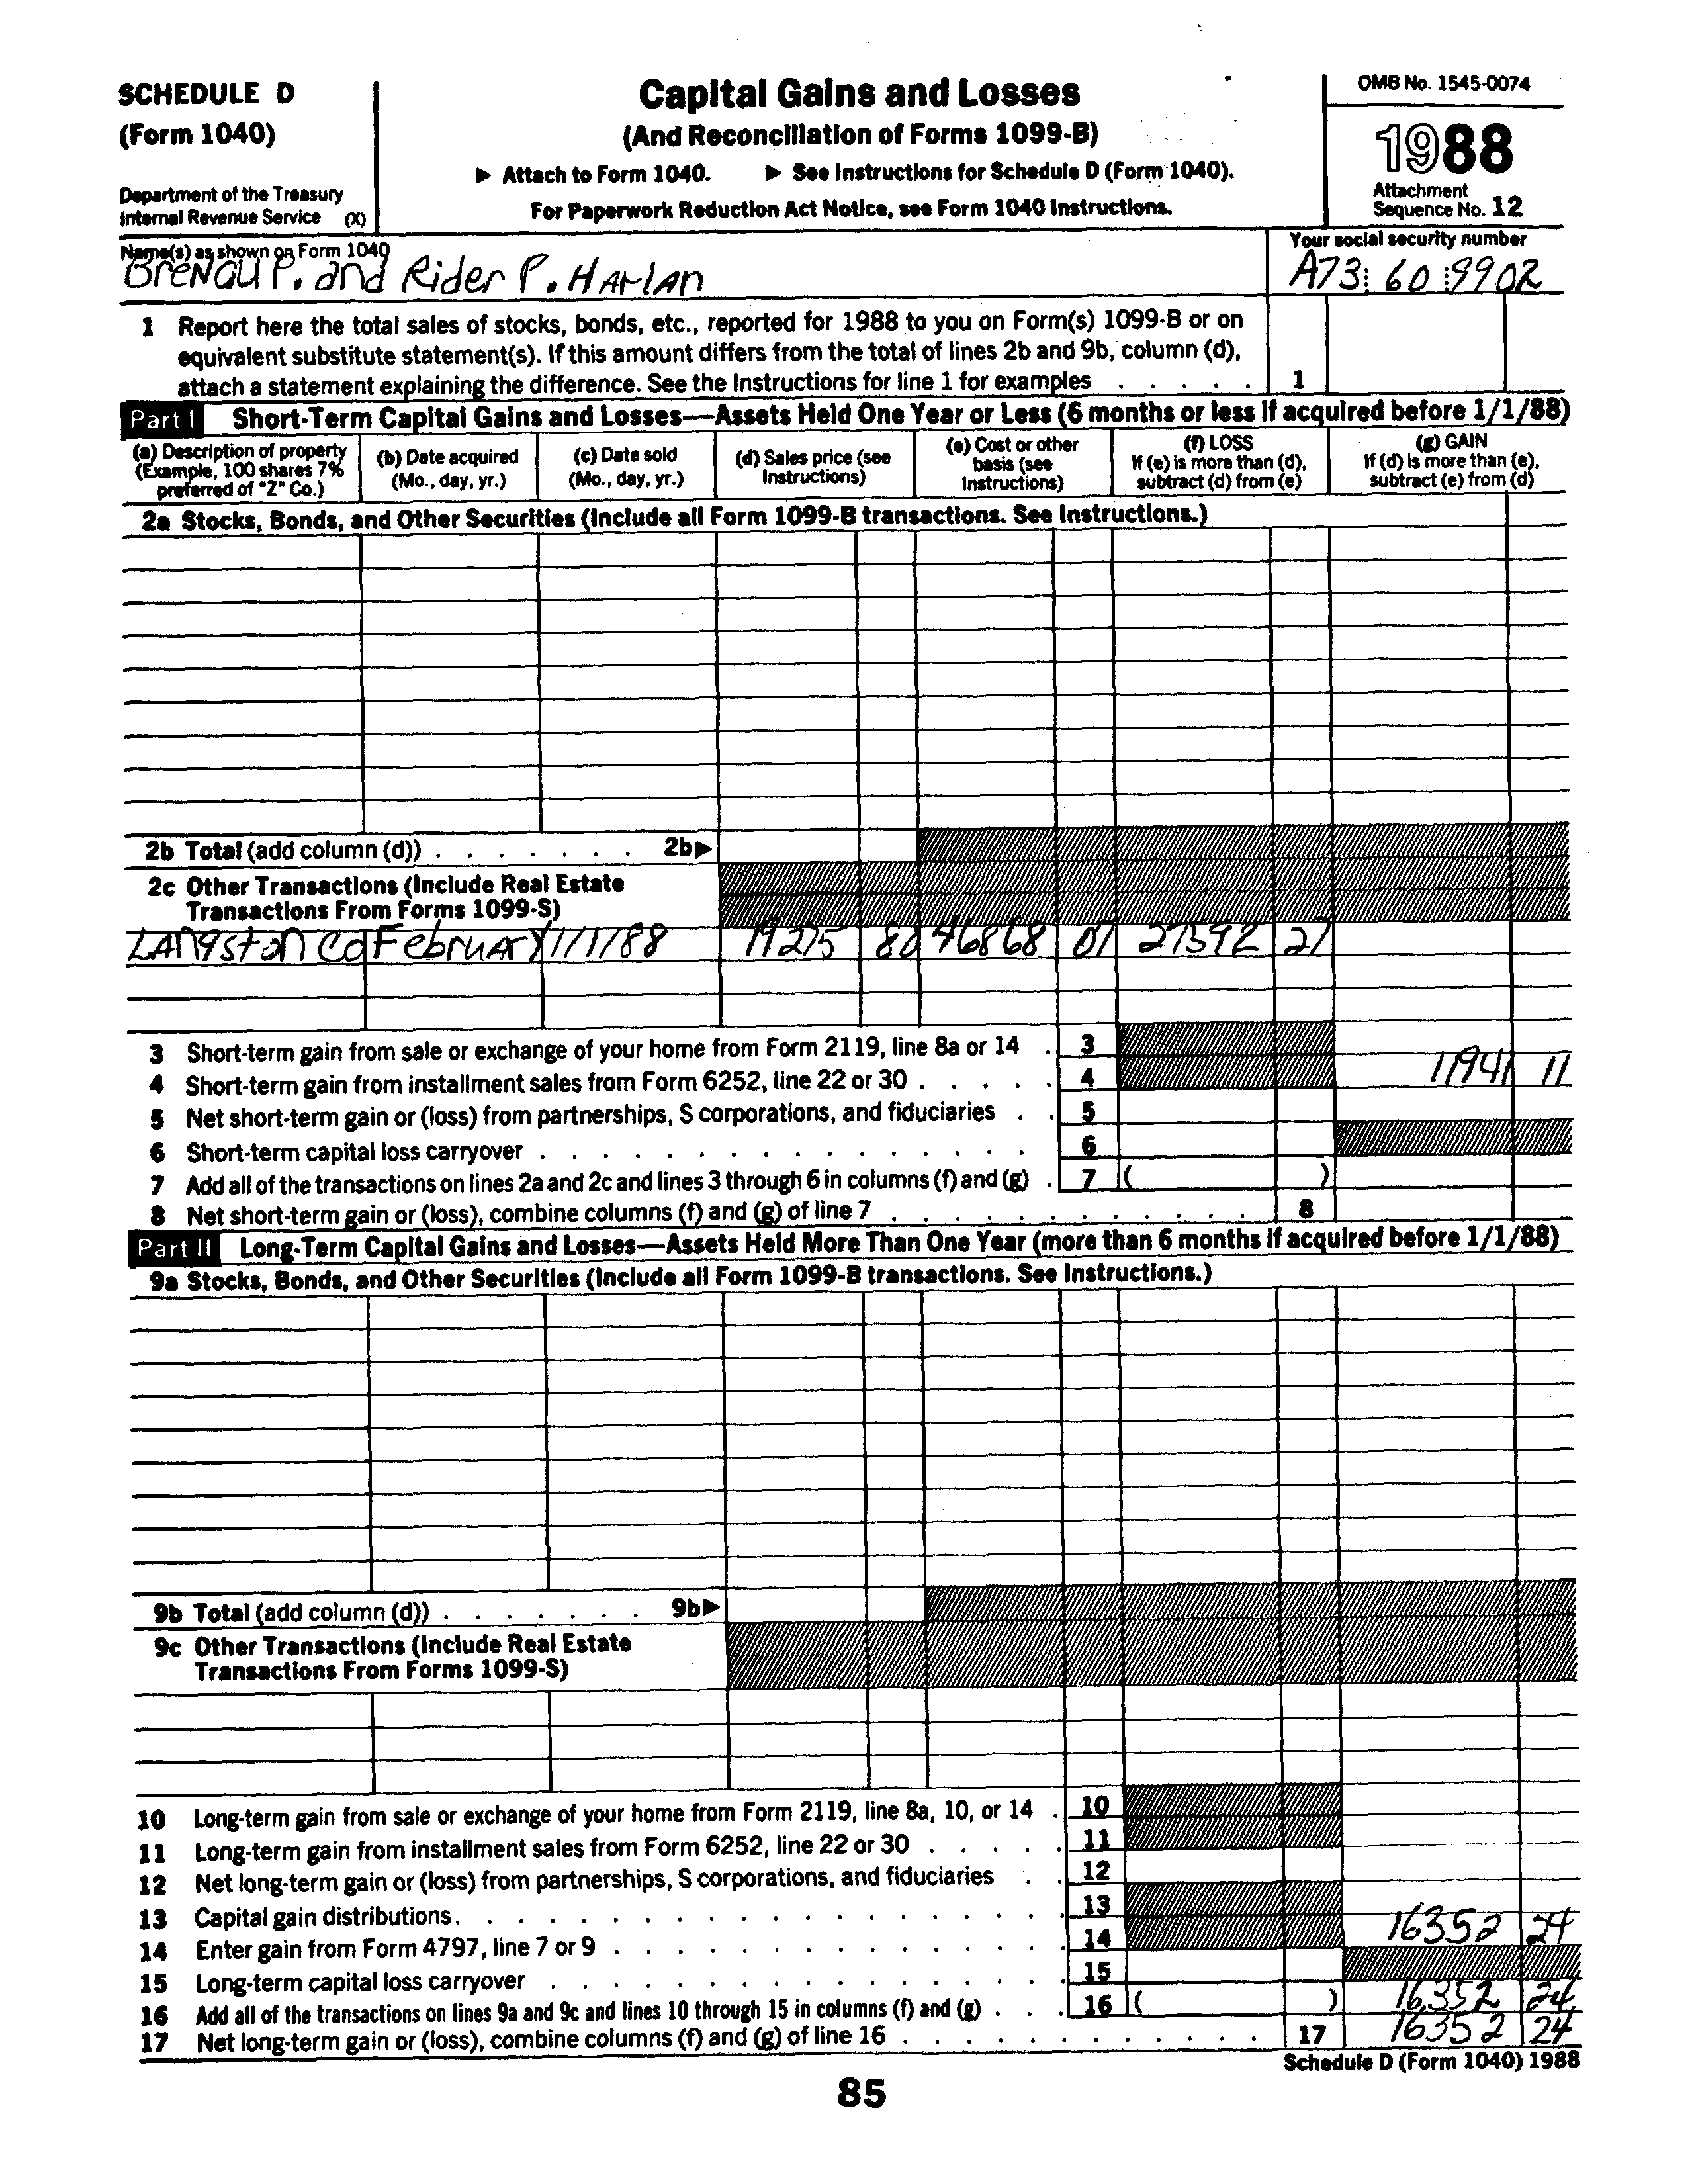 SCHEDULE D
(Form 1040)
Department of the Treasury
Internal Revenue Service (X)
Capital Gains and Losses
(And Reconciliation of Forms 1099-B)
▶ Attach to Form 1040. ▶ See Instructions for Schedule D (Form 1040).
For Paperwork Reduction Act Notice, see Form 1040 Instructions.
OMB No. 1545-0074
1988
Attachment
Sequence No. 12
Name(s) as shown on Form 1040
P. and Rider P. Harlan
Your social security number
A73 60 9902
1 Report here the total sales of stocks, bonds, etc., reported for 1988 to you on Form(s) 1099-B or on
equivalent substitute statement(s). If this amount differs from the total of lines 2b and 9b, column (d),
attach a statement explaining the difference. See the Instructions for line 1 for examples . . . . . 1
Part I Short-Term Capital Gains and Losses—Assets Held One Year or Less (6 months or less if acquired before 1/1/88)
(a) Description of property
(Example, 100 shares 7%
preferred of "Z" Co.)
(b) Date acquired
(Mo., day, yr.)
(c) Date sold
(Mo., day, yr.)
(d) Sales price (see
Instructions)
(e) Cost or other
basis (see
Instructions)
(f) LOSS
If (e) is more than (d),
subtract (d) from (e)
(g) GAIN
If (d) is more than (e),
subtract (e) from (d)
2a Stocks, Bonds, and Other Securities (Include all Form 1099-B transactions. See Instructions.)
2b Total (add column (d)) . . . . . . . 2b▶
2c Other Transactions (Include Real Estate
Transactions From Forms 1099-S)
Langston Co February 1/1/88 19275 80 46868 07 27592 27
3 Short-term gain from sale or exchange of your home from Form 2119, line 8a or 14 . 3
4 Short-term gain from installment sales from Form 6252, line 22 or 30 . . . . . 4 11941 11
5 Net short-term gain or (loss) from partnerships, S corporations, and fiduciaries . . 5
6 Short-term capital loss carryover . . . . . . . . . . . . . . . 6
7 Add all of the transactions on lines 2a and 2c and lines 3 through 6 in columns (f) and (g) . 7 ( )
8 Net short-term gain or (loss), combine columns (f) and (g) of line 7 . . . . . . . . . . . . 8
Part II Long-Term Capital Gains and Losses—Assets Held More Than One Year (more than 6 months if acquired before 1/1/88)
9a Stocks, Bonds, and Other Securities (Include all Form 1099-B transactions. See Instructions.)
9b Total (add column (d)) . . . . . . . 9b▶
9c Other Transactions (Include Real Estate
Transactions From Forms 1099-S)
10 Long-term gain from sale or exchange of your home from Form 2119, line 8a, 10, or 14 . 10
11 Long-term gain from installment sales from Form 6252, line 22 or 30 . . . . . 11
12 Net long-term gain or (loss) from partnerships, S corporations, and fiduciaries . . 12
13 Capital gain distributions. . . . . . . . . . . . . . . . . . . 13
14 Enter gain from Form 4797, line 7 or 9 . . . . . . . . . . . . . . 14 16352 24
15 Long-term capital loss carryover . . . . . . . . . . . . . . . . 15
16 Add all of the transactions on lines 9a and 9c and lines 10 through 15 in columns (f) and (g) . . . 16 ( ) 16352 24
17 Net long-term gain or (loss), combine columns (f) and (g) of line 16 . . . . . . . . . . . . 17 16352 24
Schedule D (Form 1040) 1988
85